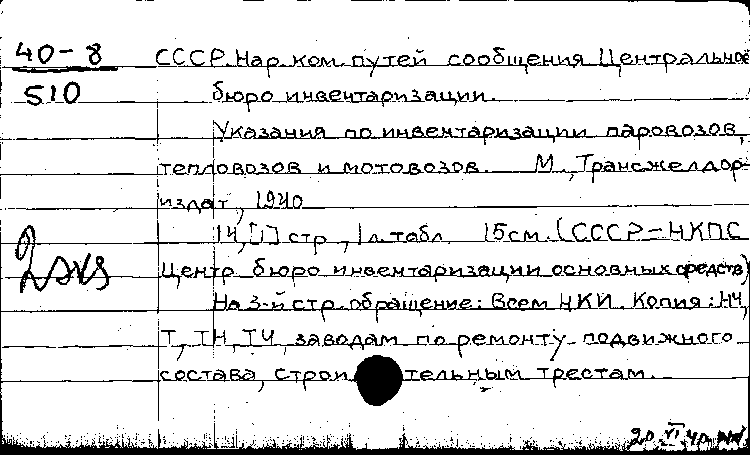 40-8
510
СССР. Нар. ком. путей сообщения Центральное
бюро инвентаризации.
Указания по инвентаризации паровозов,
тепловозов и мотовозов. М., Трансжелдор-
издат, 1940
14, [1] стр., 1 л. табл. 15см. (СССР-НКПС
Центр. бюро инвентаризации основных средств)
2 экз
На 3-й стр. обращение: Всем НКИ. Копия: НЧ,
Т, ТН, ТЧ, заводам по ремонту подвижного
состава, строительным трестам.
20.VI.40